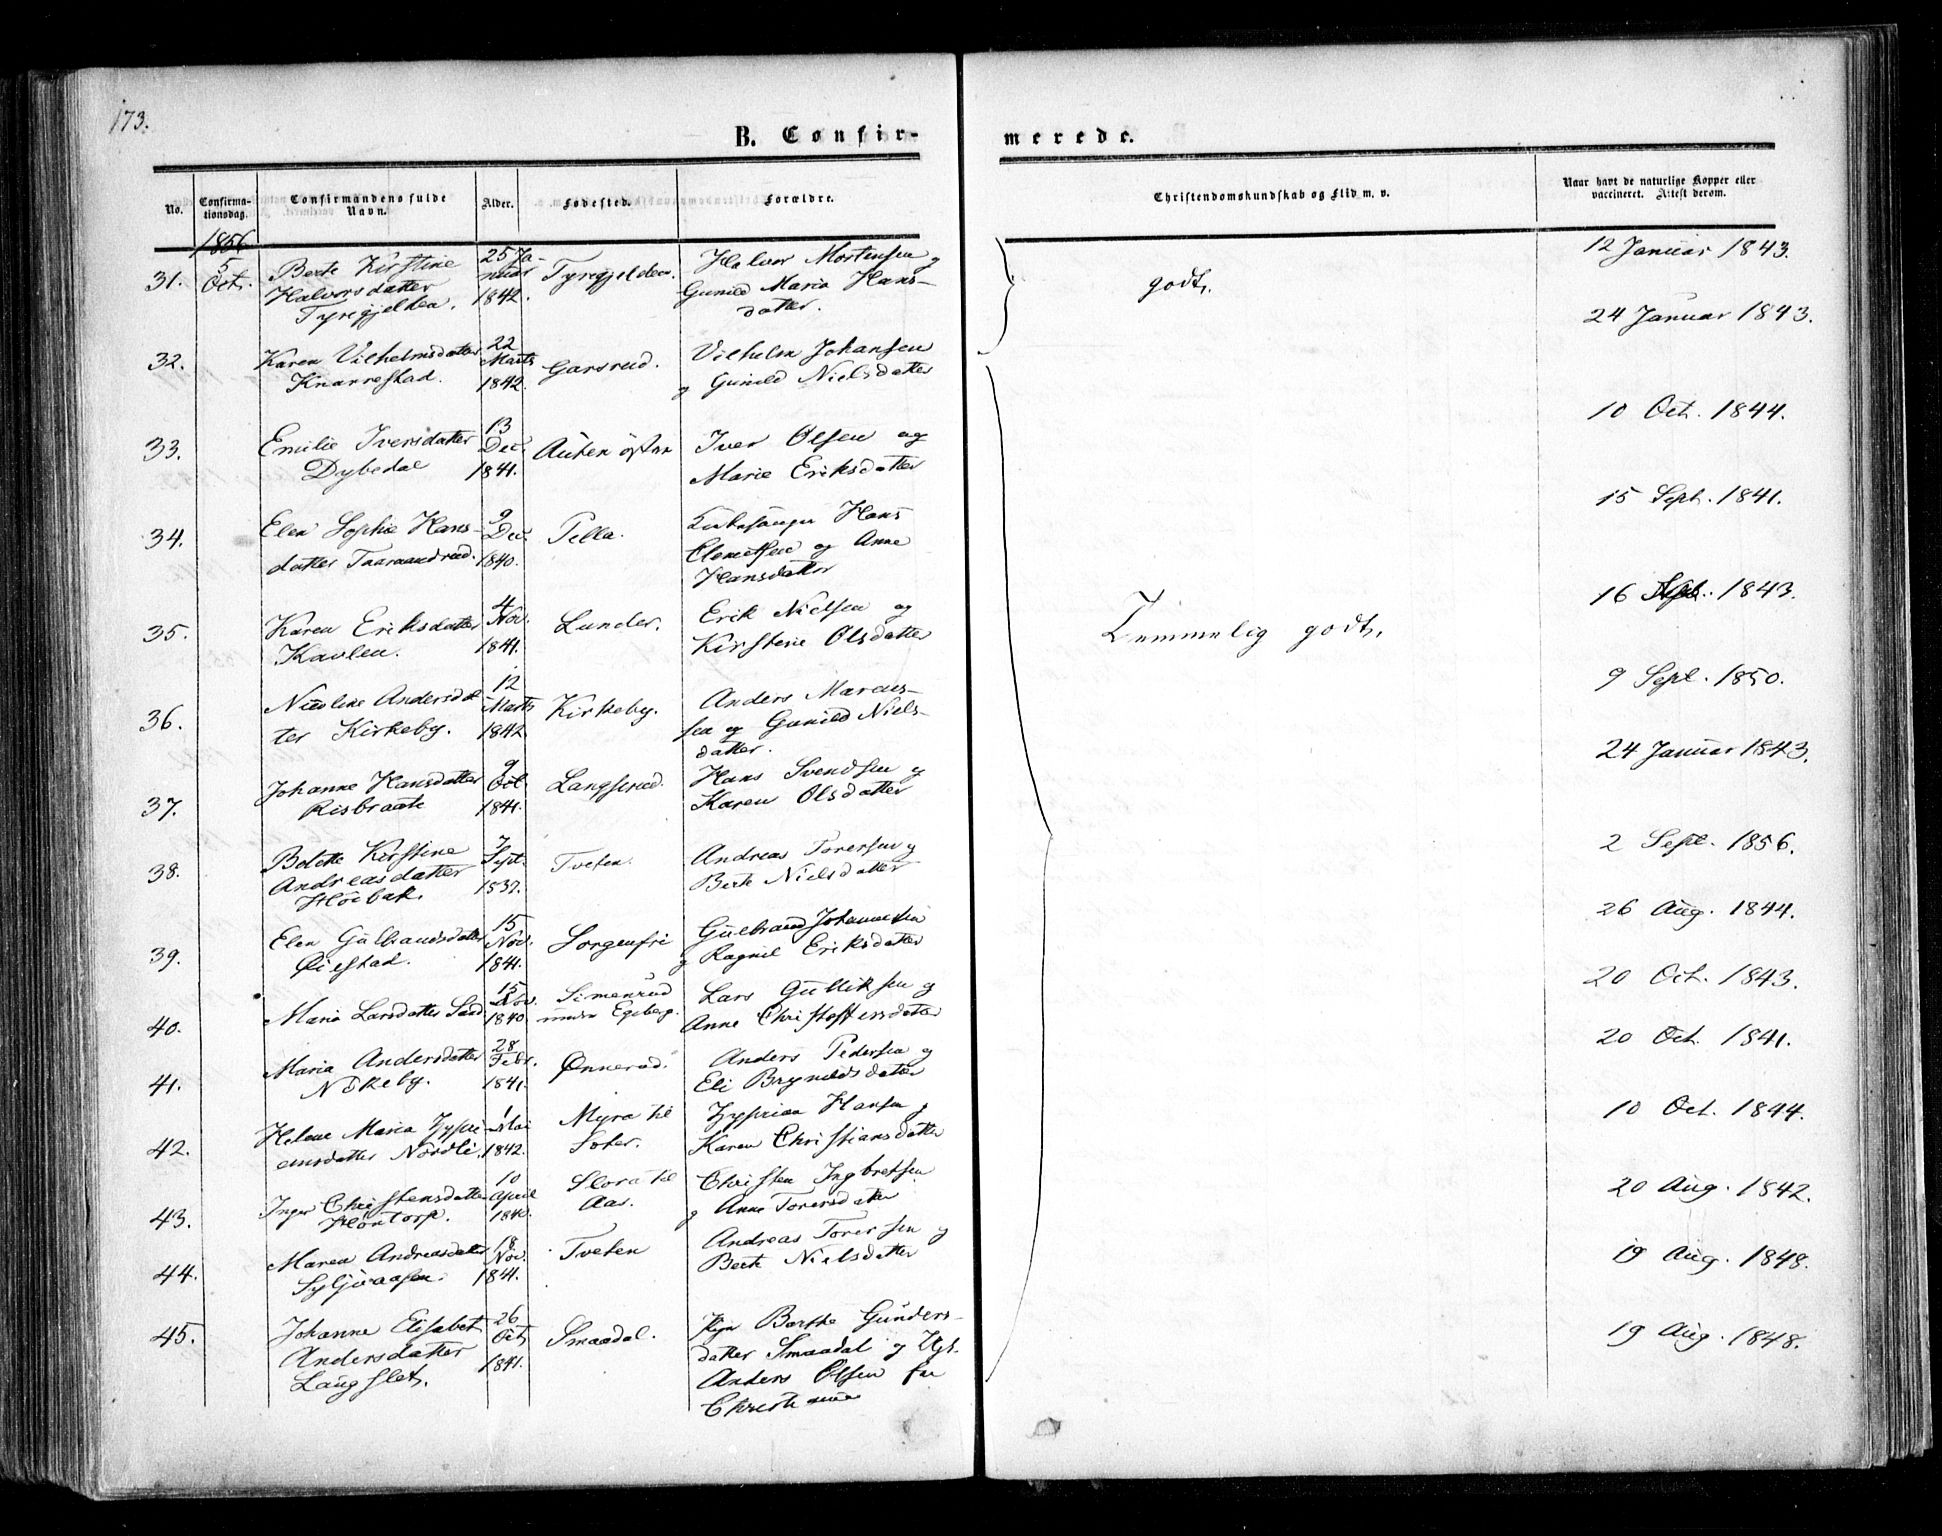 173.
B. Confir-
merede.
No.
Confirma-
tionsdag.
Confirmandens fulde
Navn.
Alder.
Fødested.
Forældre.
Christendomskundskab og Flid m. v.
Naar havt de naturlige Kopper eller
vaccineret. Attest derom.
1856
31. 5 Oct. Berte Kirstine Halvorsdatter Tyrigjelden. 25 Januar 1842. Tyrigjelden. Halvor Mortensen og Gunild Maria Hansdatter. godt. 12 Januar 1843.
32. Karen Vilhelmsdatter Knarrestad. 22 Marts 1842. Garsrud. Vilhelm Johansen og Gunild Nielsdatter 24 Januar 1843.
33. Emilie Iversdatter Dybedal 13 Dec. 1841. Auten østen Iver Olsen og Marie Eriksdatter 10 Oct. 1844.
34. Elen Sophie Hansdatter Taraandrud. 9 Dec. 1840. Pella. Kirkesanger Hans Clemetsen og Anne Hansdatter 15 Sept. 1841.
35. Karen Eriksdatter Kavlen. 4 Nov. 1841. Lunder. Erik Nielsen og Kirstine Olsdatter Temmelig godt. 16 1843.
36. Nicoline Andersdatter Kirkeby. 12 Marts 1842. Kirkeby. Anders Marcussen og Gunild Nielsdatter. 9 Sept. 1850.
37. Johanne Hansdatter Risbraate 9 Oct. 1841. Langserud. Hans Svendsen og Karen Olsdatter 24 Januar 1843.
38. Bolette Kirstine Andreasdatter Høibak. 7 Sept. 1837. Tveten. Andreas Torersen og Berte Nielsdatter 2 Sept. 1856.
39. Elen Gulbrandsdatter Øiestad. 15 Nov. 1841. Sorgenfri Gulbrand Johannesen og Ragnil Eriksdatter 26 Aug. 1844.
40. Maria Larsdatter Sand 15 Nov. 1840. Simenrud under Egeberg. Lars Gulliksen og Anne Christoffersdatter 20 Oct. 1843.
41. Maria Andersdatter Nökeby. 28 Febr. 1841. Ønnerud. Anders Pedersen og Eli Brynildsdatter 20 Oct. 1841.
42. Helene Maria Zyprianusdatter Nordli. 1 Mai 1842. Myra til Soter. Zyprian Hansen og Karen Christiansdatter 10 Oct. 1844.
43. Inger Christensdatter Höntorp. 10 April 1840. Slora til Aas. Christen Ingbretsen og Anne Torersdatter 20 Aug. 1842.
44. Maren Andreasdatter Syljuaasen. 18 Nov. 1841. Tveten Andreas Torersen og Berte Nielsdatter 19 Aug. 1848.
45. Johanne Elisabet Andersdatter Langslet. 26 Oct. 1841. Smaadal. Pige Berthe Gundersdatter Smaadal og Ugk. Anders Olsen fra Christiania 19 Aug. 1848.